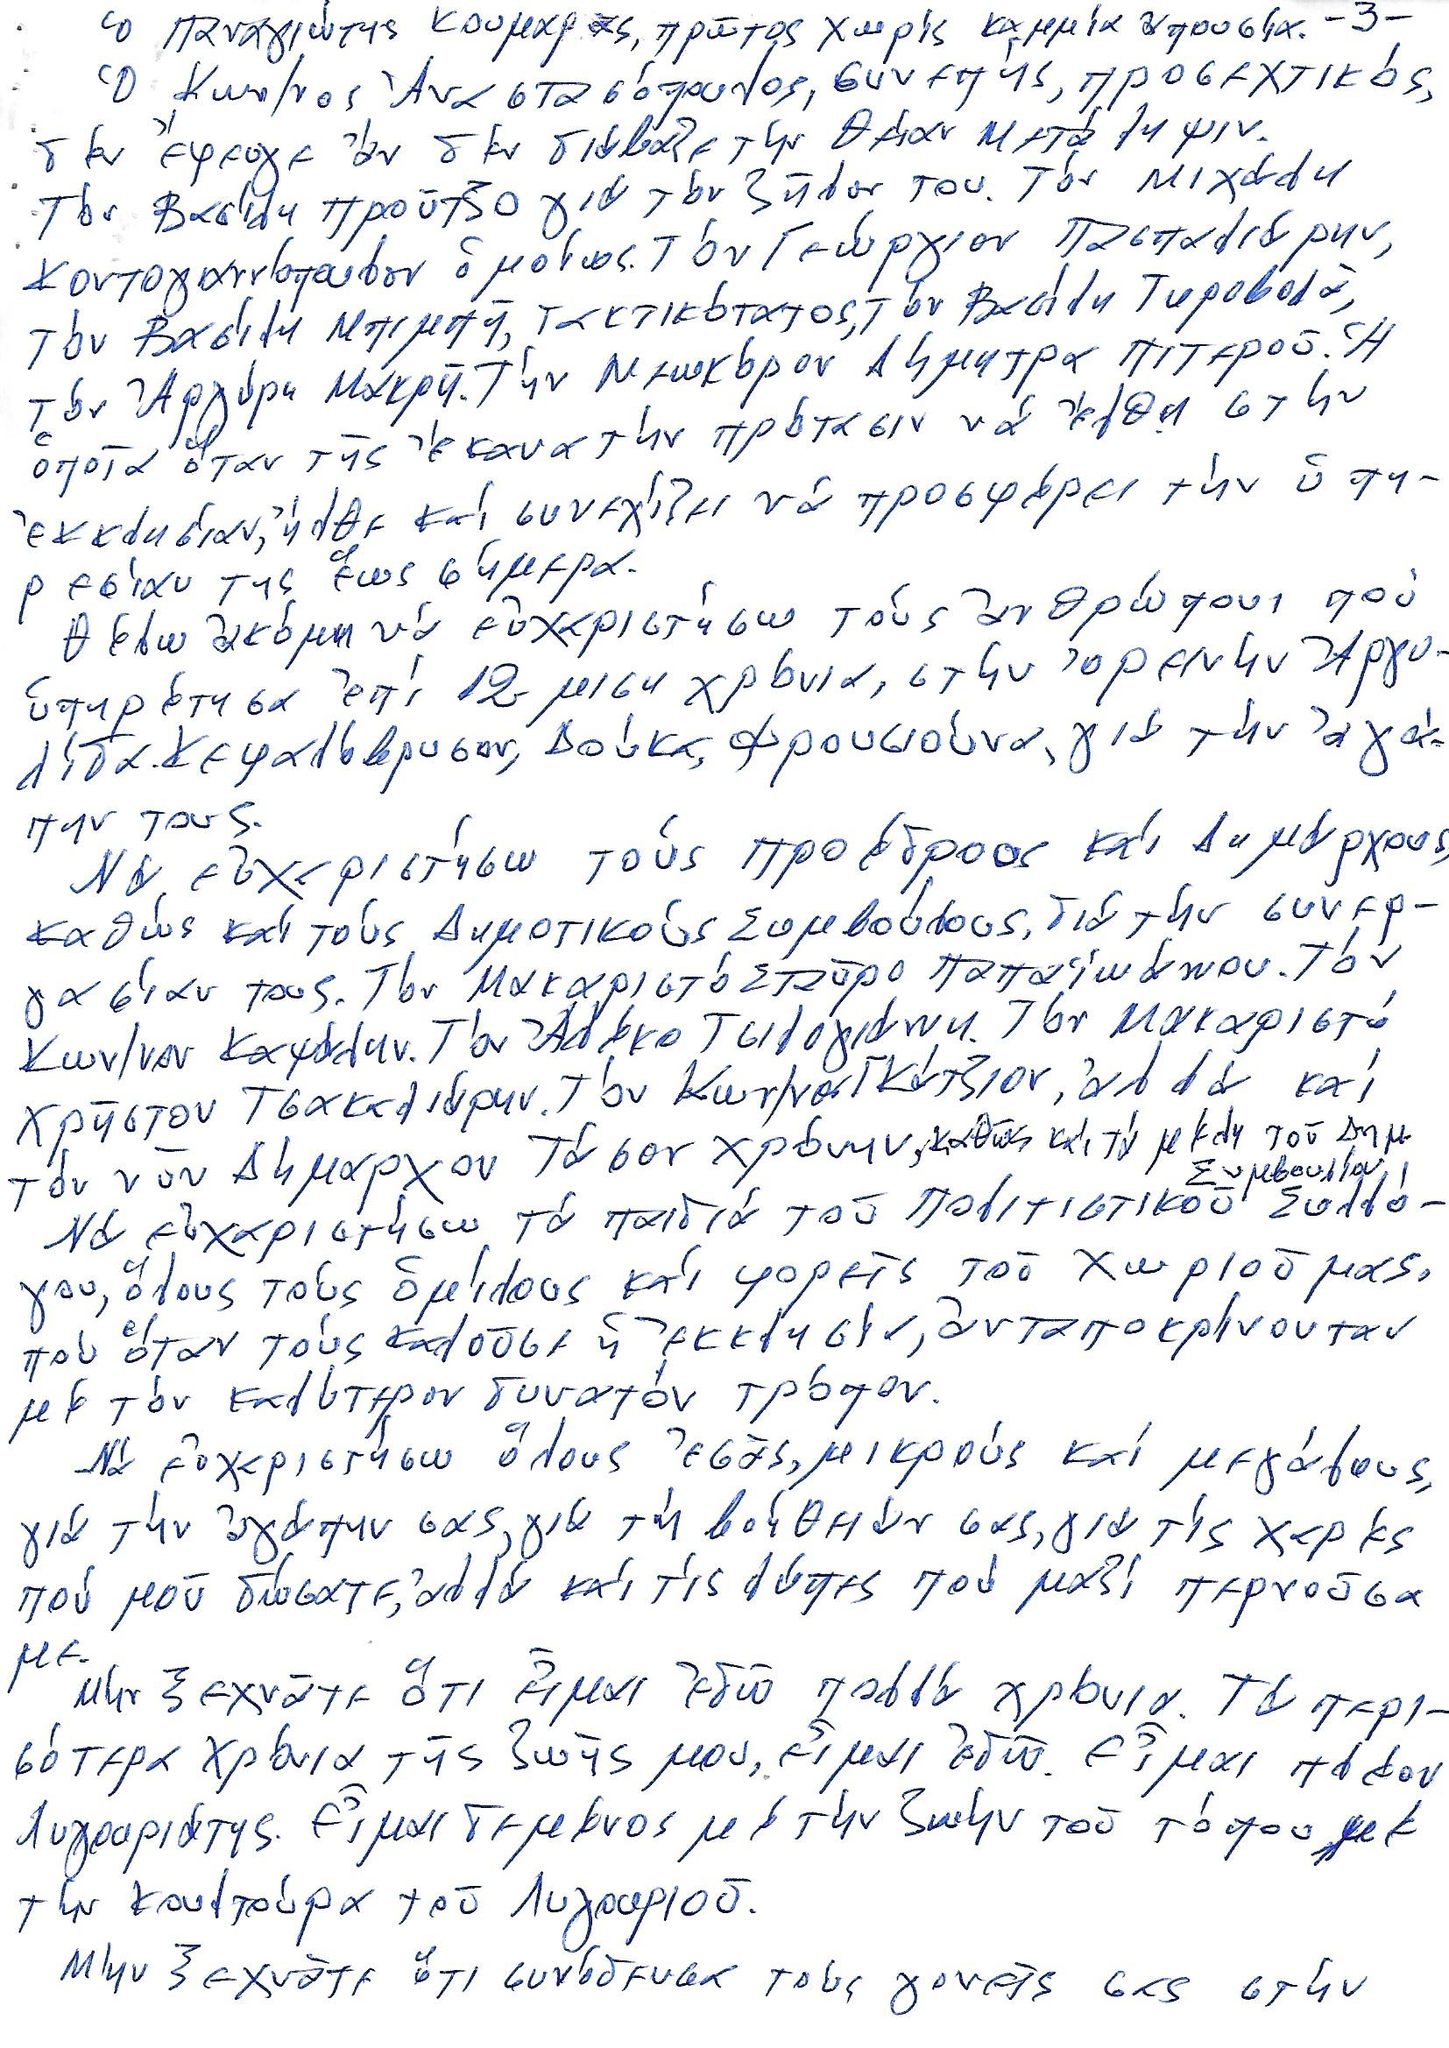 Ὁ Παναγιώτης Κουμαρᾶς, πρῶτος χωρίς καμμία ἀπουσία. -3-
Ὁ Κων/νος Ἀναστασόπουλος, συνεπής, προσεχτικός,
δέν ἔφευγε ἄν δέν διάβαζε τήν Θείαν Μετάληψιν.
Τόν Βασίλη Προῦτζο γιά τόν ζῆλον του. Τόν Μιχάλη
Κοντογιαννόπουλον ὁμοίως. Τόν Γεώργιον Πασπαλιάρην,
τόν Βασίλη Μπιμπῆ, τακτικότατος, τόν Βασίλη Τυροβολᾶ,
τόν Ἀργύρη Μακρῆ. Τήν Νεωκόρον Δήμητρα Πιτεροῦ. Ἡ
ὁποῖα ὅταν τῆς ἔκανα τήν πρότασιν νά ἔλθῃ στήν
ἐκκλησίαν, ἦλθε καί συνεχίζει νά προσφέρει τήν ὑπη-
ρεσίαν της ἕως σήμερα.
Θέλω ἀκόμη νά εὐχαριστήσω τούς ἀνθρώπους πού
ὑπηρέτησα ἐπί 12 μιση χρόνια, στήν ὀρεινήν Ἀργο-
λίδα. Κεφαλόβρυσον, Δούκα, Φρουσιούνα, γιά τήν ἀγά-
πην τους.
Νά εὐχαριστήσω τούς προέδρους καί Δημάρχους,
καθώς καί τούς Δημοτικούς Συμβούλους, διά τήν συνερ-
γασίαν τους. Τόν Μακαριστό Σταῦρο Παπαϊωάννου. Τόν
Κων/νον Καψάλην. Τόν Ἀλέκο Τσιλογιάννη. Τόν Μακαριστό
Χρῆστον Τσακαλιάρην. Τόν Κων/νον Γκάτζιον, ἀλλά καί
τόν νῦν Δήμαρχον Τάσον Χρόνην, καθώς καί τά μέλη τοῦ Δημ.
Συμβουλίου.
Νά εὐχαριστήσω τά παιδιά τοῦ Πολιτιστικοῦ Συλλό-
γου, ὅλους τούς ὁμίλους καί φορεῖς τοῦ χωριοῦ μας,
πού ὅταν τούς καλοῦσε ἡ ἐκκλησία, ἀνταποκρίνονταν
μέ τόν καλύτερον δυνατόν τρόπον.
Νά εὐχαριστήσω ὅλους ἐσᾶς, μικρούς καί μεγάλους,
γιά τήν ἀγάπην σας, γιά τή βοήθειάν σας, γιά τίς χαρές
πού μοῦ δώσατε, ἀλλά καί τίς λύπες πού μαζί περνοῦσα
με.
Μήν ξεχνᾶτε ὅτι εἶμαι ἐδῶ πολλά χρόνια. Τά περι-
σότερα χρόνια τῆς ζωῆς μου, εἶμαι ἐδῶ. Εἶμαι πλέον
Λυγουριάτης. Εἶμαι δεμένος μέ τήν ζωήν τοῦ τόπου μέ
τήν κουλτούρα τοῦ Λυγουριοῦ.
Μήν ξεχνᾶτε ὅτι συνόδευσα τούς γονεῖς σας στήν